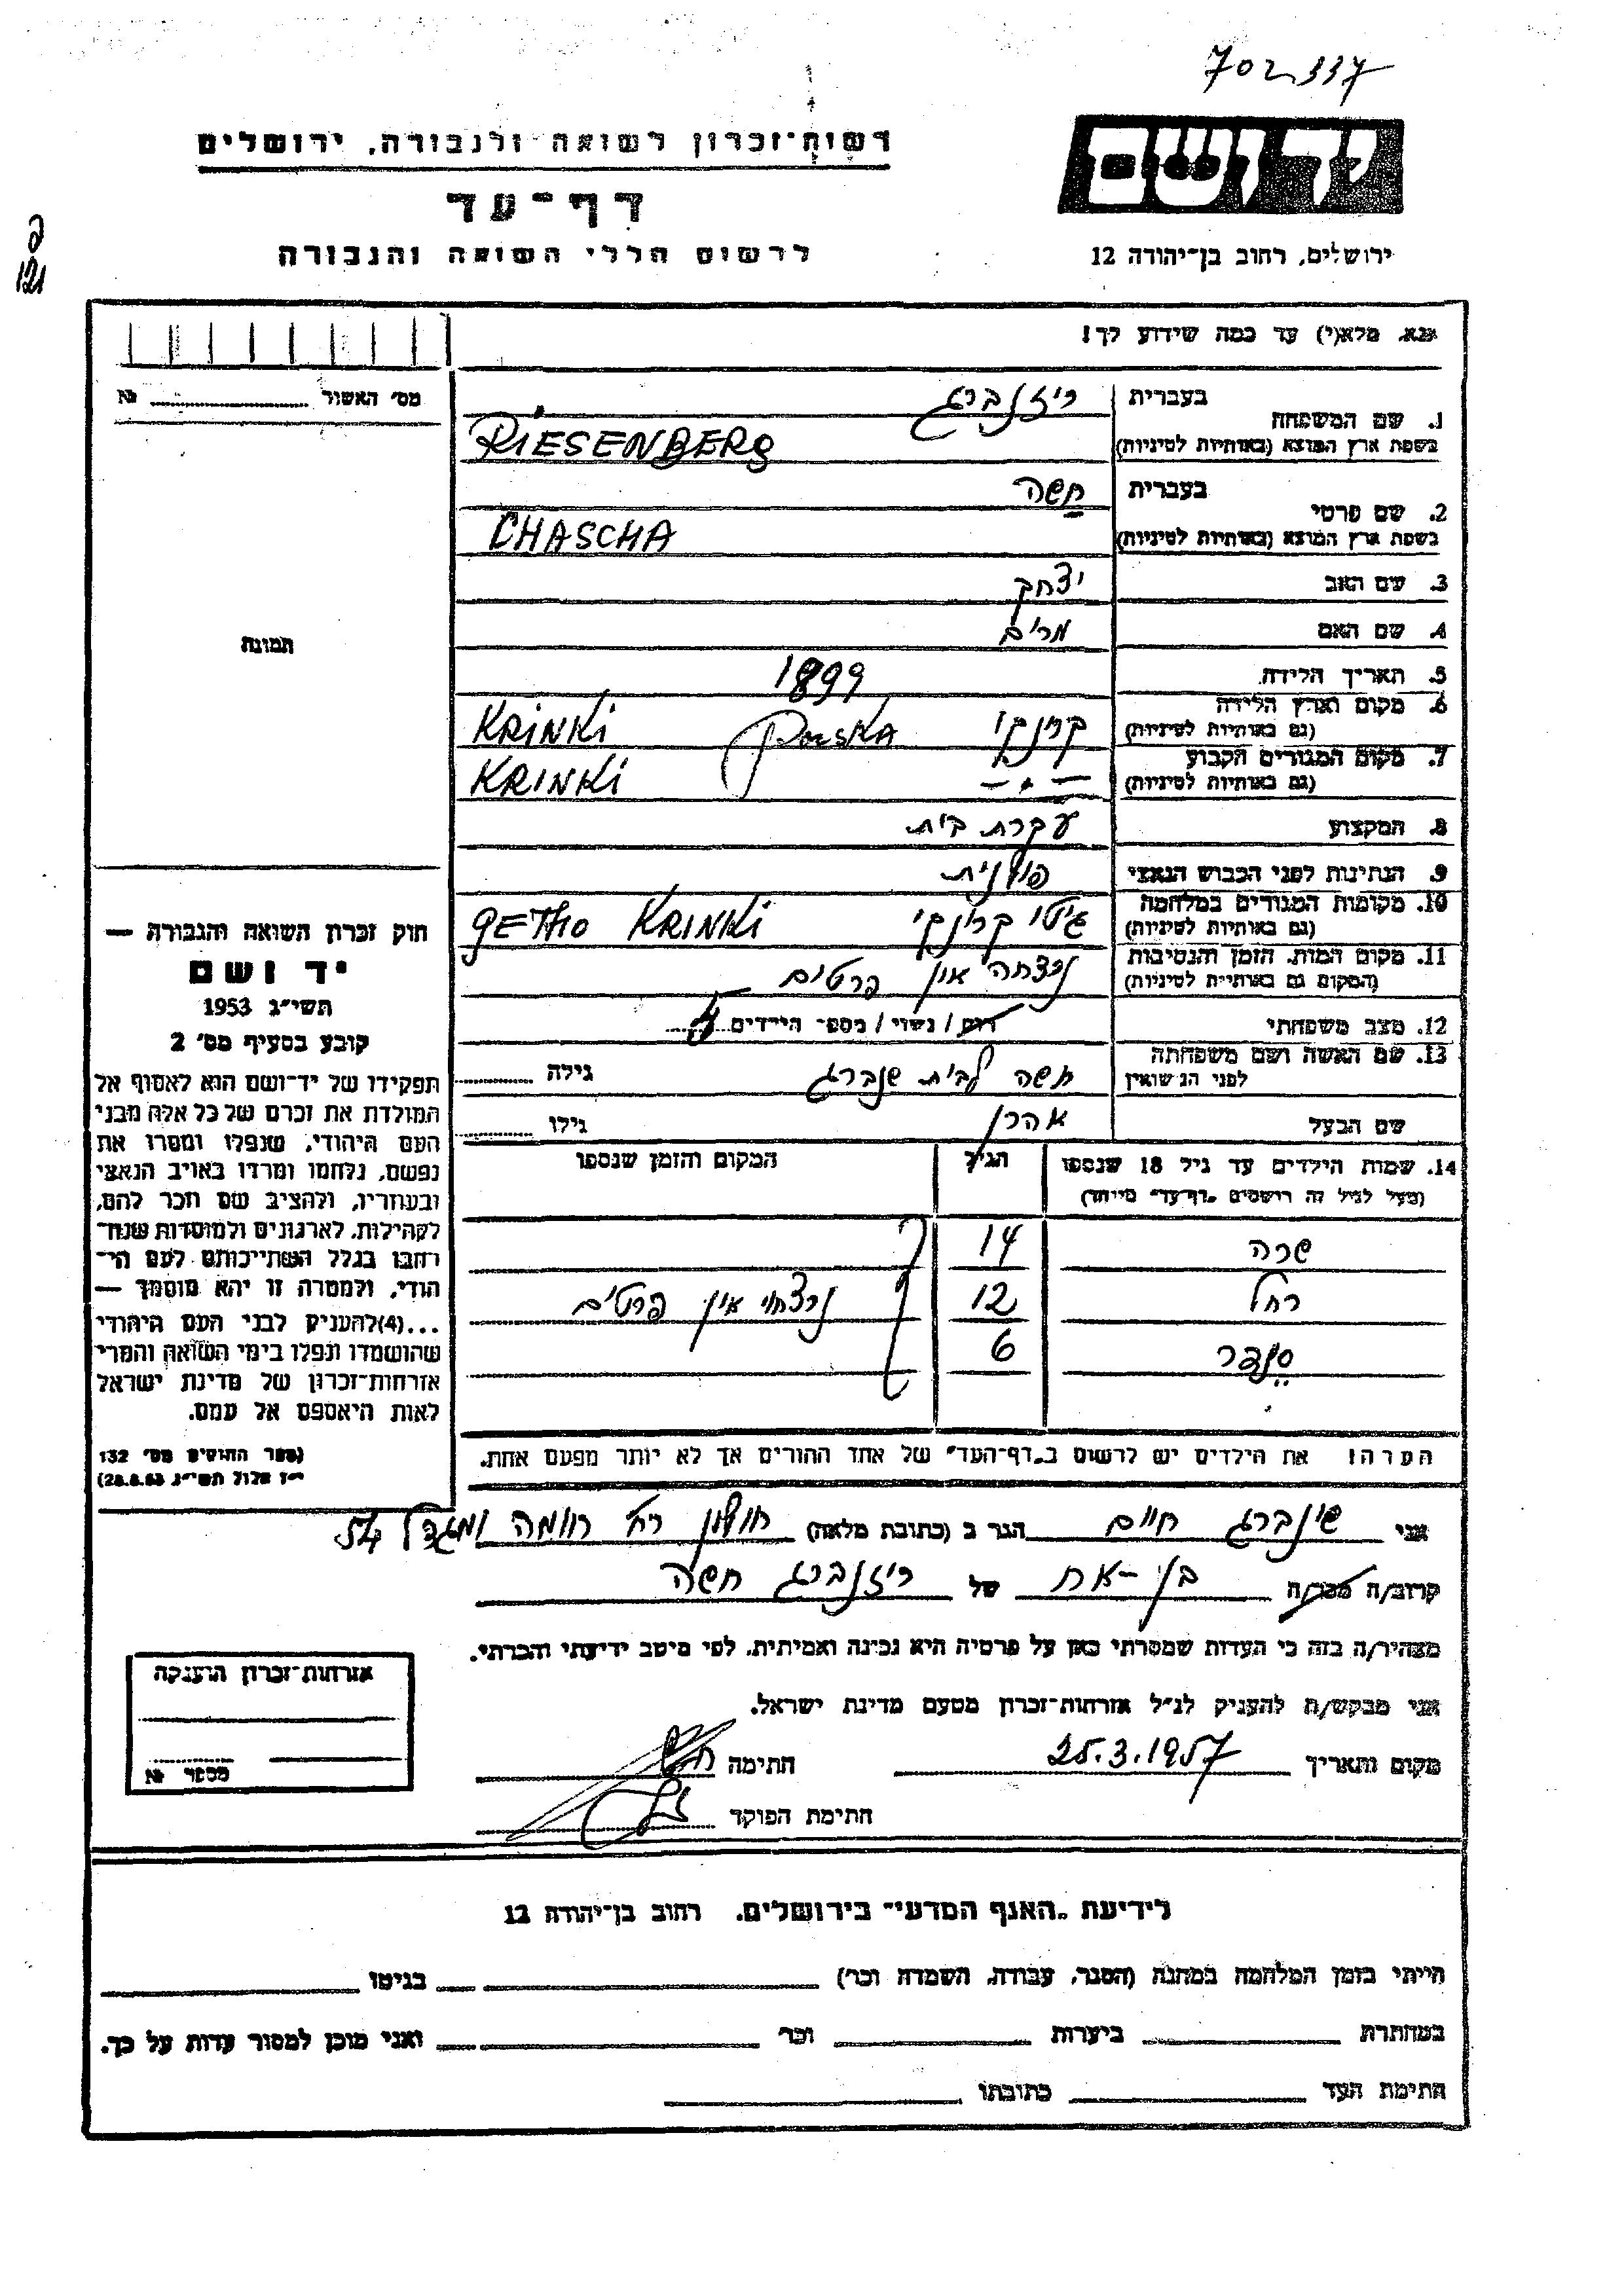 702337
יד ושם
רשות־זכרון לשואה ולגבורה, ירושלים
דף־עד
לרשום חללי השואה והגבורה
ירושלים, רחוב בן־יהודה 12
121
אנא, מלא(י) עד כמה שידוע לך!
מס' האשור № 
1. שם המשפחה
בעברית ריזנברג
בשפת ארץ המוצא (באותיות לטיניות) RIESENBERG
2. שם פרטי
בעברית חשה
בשפת ארץ המוצא (באותיות לטיניות) CHASCHA
3. שם האב יצחק
4. שם האם מרים
5. תאריך הלידה 1899
6. מקום וארץ הלידה (גם באותיות לטיניות) קרינקי POLSKA KRINKI
7. מקום המגורים הקבוע (גם באותיות לטיניות) — " — KRINKI
8. המקצוע עקרת בית
9. הנתינות לפני הכבוש הנאצי פולנית
10. מקומות המגורים במלחמה (גם באותיות לטיניות) גיטו קרינקי GETHO KRINKI
11. מקום המות, הזמן והנסיבות (המקום גם באותיות לטיניות) נרצחה אין פרטים
12. מצב משפחתי רווק / נשוי / מספר הילדים
13. שם האשה ושם משפחתה לפני הנישואין חשה לבית שנברג גילה
שם הבעל אהרן גילו
14. שמות הילדים עד גיל 18 שנספו הגיל המקום והזמן שנספו
(מעל לגיל זה רושמים „דף־עד" מיוחד)
שרה 14
רחל 12 נרצחו אין פרטים
סנדר 6
הערה! את הילדים יש לרשום ב„דף־העד" של אחד ההורים אך לא יותר מפעם אחת.
תמונה
חוק זכרון השואה והגבורה —
יד ושם
תשי"ג 1953
קובע בסעיף מס' 2
תפקידו של יד־ושם הוא לאסוף אל
המולדת את זכרם של כל אלה מבני
העם היהודי, שנפלו ומסרו את
נפשם, נלחמו ומרדו באויב הנאצי
ובעוזריו, ולהציב שם וזכר להם,
לקהילות, לארגונים ולמוסדות שנח־
רבו בגלל השתייכותם לעם הי־
הודי, ולמטרה זו יהא מוסמך —
...(4) להעניק לבני העם היהודי
שהושמדו ונפלו בימי השואה והמרי
אזרחות־זכרון של מדינת ישראל
לאות היאספם אל עמם.
(ספר החוקים מס' 132
י"ז אלול תשי"ג 28.8.53)
אני שינברג חיים הגר ב (כתובת מלאה) חולון רח'
קרוב/ה מכר/ה בן־אח של ריזנברג חשה
מצהיר/ה בזה כי העדות שמסרתי כאן על פרטיה היא נכונה ואמיתית, לפי מיטב ידיעתי והכרתי.
אני מבקש/ת להעניק לנ"ל אזרחות־זכרון מטעם מדינת ישראל.
מקום ותאריך 25.3.1957 חתימה
חתימת הפוקד
אזרחות־זכרון הוענקה
מספר №
לידיעת „האגף המדעי" בירושלים, רחוב בן־יהודה 12
הייתי בזמן המלחמה במחנה (הסגר, עבודה, השמדה וכו') בגיטו
במחתרת ביערות וכו' ואני מוכן למסור עדות על כך.
חתימת העד כתובתו